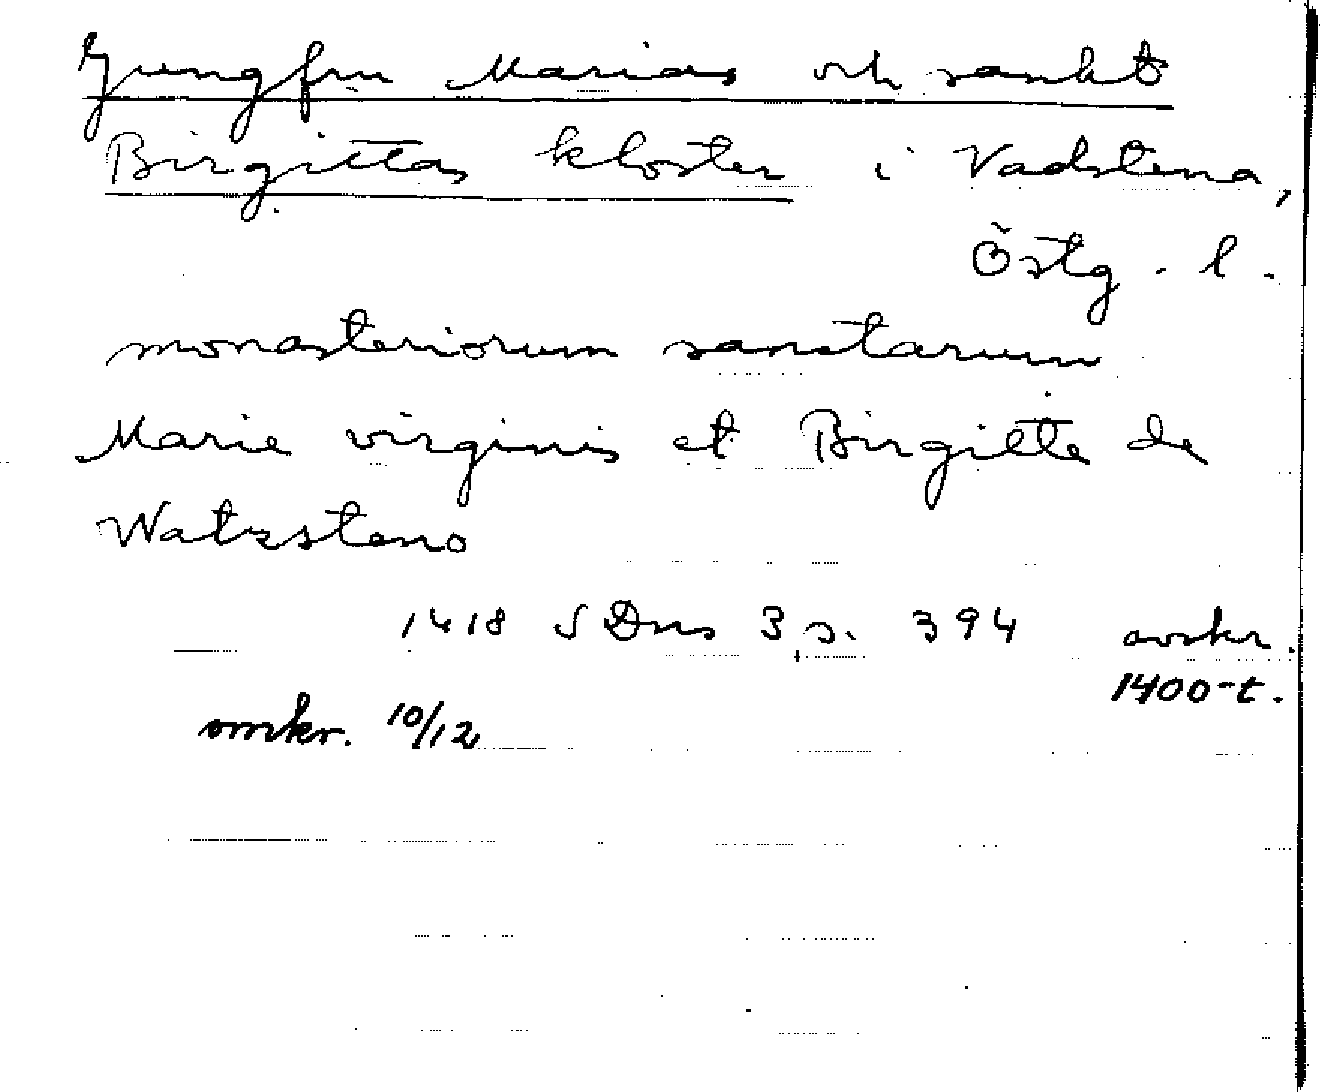 Jungfru Marias och sankt
Birgittas kloster i Vadstena,
Östg. l.
monasteriorum sanctarum
Marie virginis et Birgitte de
Watzsteno
1418 SDns 3, s. 394 avskr.
1400-t.
omkr. 10/12